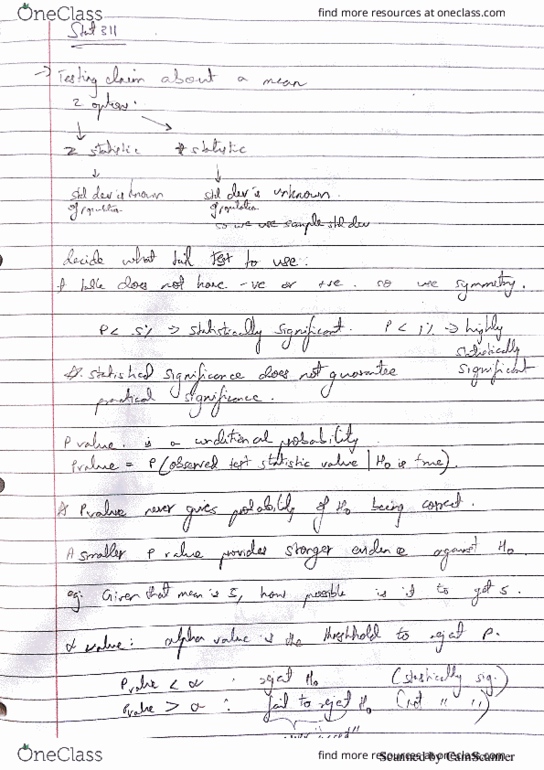 OneClass
find more resources at oneclass.com
Stat 311
→ Testing claim about a mean
2 option.
z statistic t statistic
std dev is known std dev is unknown.
of population of population
so we use sample std dev
decide what tail test to use.
t table does not have -ve or +ve. so use symmetry.
P < 5% → statistically significant. P < 1% → highly
statistically
significant
statistical significance does not guarantee
practical significance.
P value. is a conditional probability
Pvalue = P(observed test statistic value | H₀ is true).
Pvalue never gives probability of H₀ being correct.
A smaller P value provides stronger evidence against H₀
eg: Given that mean is 5, how possible is it to get 5.
α value: alpha value is the threshhold to reject P.
Pvalue < α : reject H₀ (statistically sig.)
Pvalue > α : fail to reject H₀ (not " ")
OneClass
find more resources at oneclass.com
Scanned by CamScanner